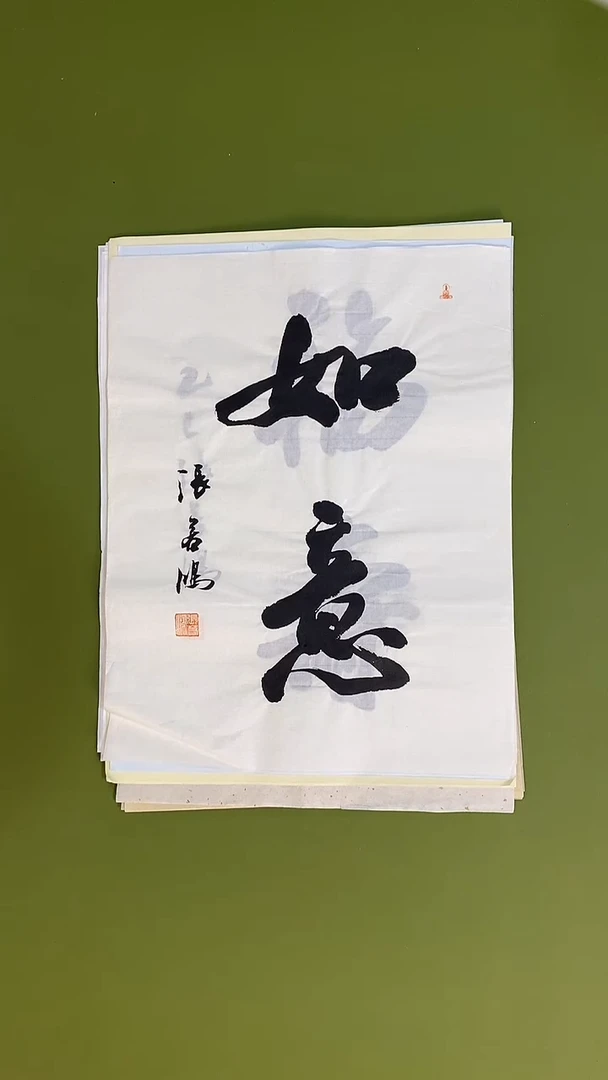 如意
張若鴻